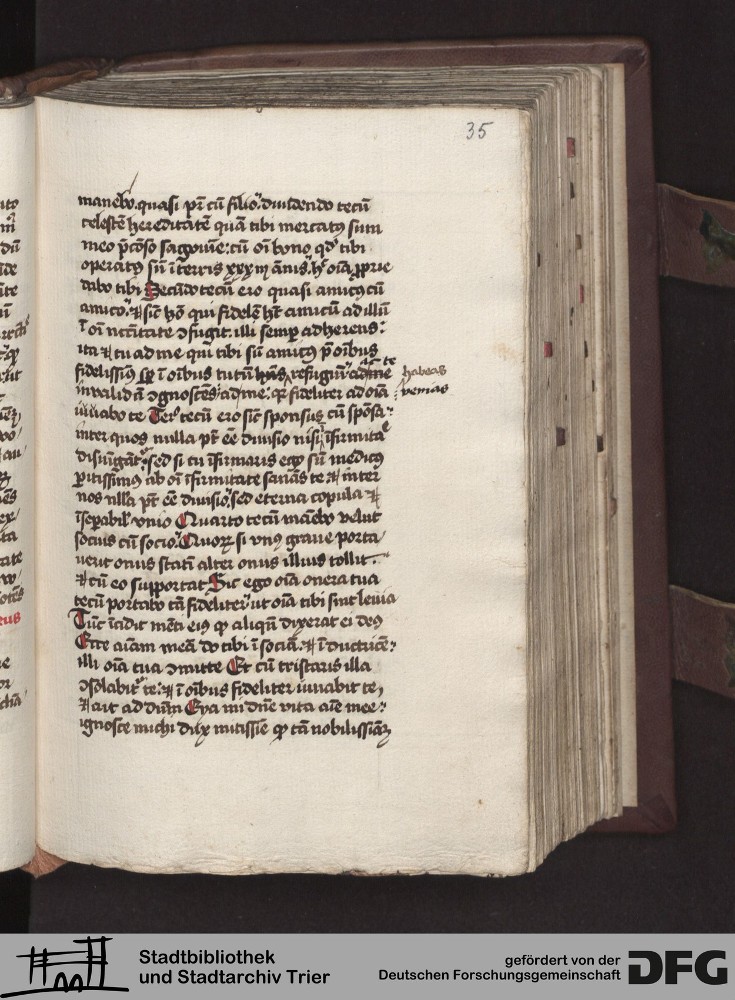 35
manebo quasi pr̄ cū filio diuidendo tecū
celestē hereditatē quā tibi mercatꝰ sum
meo p̄cioso sāgwīe: cū oī bono qd̛ tibi
operatꝰ sū ī terris xxxiij ānis hͦ oīa ꝓprie
dabo tibi Secūdo tecū ero quasi amicꝰ cū
amico sic hō qui fidelē hꝫ amicū ad illū
ī oī nccītate ↄfugit illi semꝑ adherens:
ita ⁊ tu ad me qui tibi sū amicꝰ p̄ oībus
fidelissimꝰ ī oībus tutū refugiū ad me
habeas
inualidā ↄgnoscēs ad me: qꝛ fideliter ad oīa
venias
iuuabo te Tercͦ tecū ero sic sponsus cū spōsa
inter quos nulla pt̄ eē diuisio nisi īfirmitas
disiūgat sed si tu īfirmaris ego sū medicꝰ
ꝑitissimꝰ ab oī īfirmitate sanās te ⁊ inter
nos nlla pt̄ eē diuisio sed eterna copula ⁊
īseꝑabil' vnio Quarto tecū manebo velut
socius cū socio Quorꝝ si vnꝰ graue porta
uerit onus statī alter onus illius tollit
⁊ cū eo supportat Sic ego oīa onera tua
tecū portabo tā fideliter ut oīa tibi sint leuia
Tūc īcidit mēti eiꝰ qꝫ aliqn̄ dixerat ei deꝰ
Ecce aīam meā do tibi ī sociā ⁊ ī ductricē
illi oīa tua ↄmitte Et cū tristaris illa
ↄsolabit᷑ te: ⁊ ī oībus fideliter iuuabit te,
⁊ ait ad dūm Eya mi dne vita aīe mee:
ignosce michi dulx mitissīe qꝫ tā nobilissimā
Stadtbibliothek
und Stadtarchiv Trier
gefördert von der
Deutschen Forschungsgemeinschaft
DFG